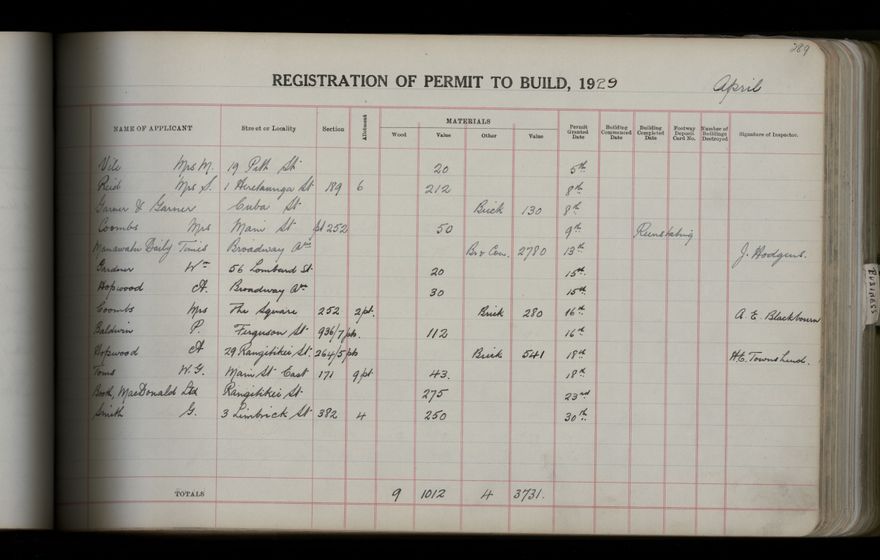 289
REGISTRATION OF PERMIT TO BUILD, 1929 April
MATERIALS
NAME OF APPLICANT Street or Locality Section Allotment Wood Value Other Value Permit Granted Date Building Commenced Date Building Completed Date Footway Deposit Card No. Number of Buildings Destroyed Signature of Inspector.
Vile Mrs M. 19 Pitt St 20 5th
Reid Mrs S. 1 Heretaunga St 189 6 212 8th
Garner & Garner Cuba St Brick 130 8th
Coombs Mrs Main St pt 252 50 9th Reinstating
Manawatu Daily Times Broadway Ave Br & Con. 2780 13th J. Hodgens.
Gardner Wm 56 Lombard St 20 15th
Hopwood A. Broadway Ave 30 15th
Coombs Mrs The Square 252 2 pt. Brick 280 16th A E. Blackbourn
Baldwin P. Ferguson St 936/7 pts. 112 16th
Hopwood A 29 Rangitikei St. 264/5 pts Brick 541 18th H.E. Townshend.
Toms W.G. Main St East 171 9 pt 43. 18th
Booth, MacDonald Ltd Rangitikei St 275 23rd
Smith G. 3 Limbrick St 382 4 250 30th
TOTALS 9 1012 4 3731.
BUSINESS